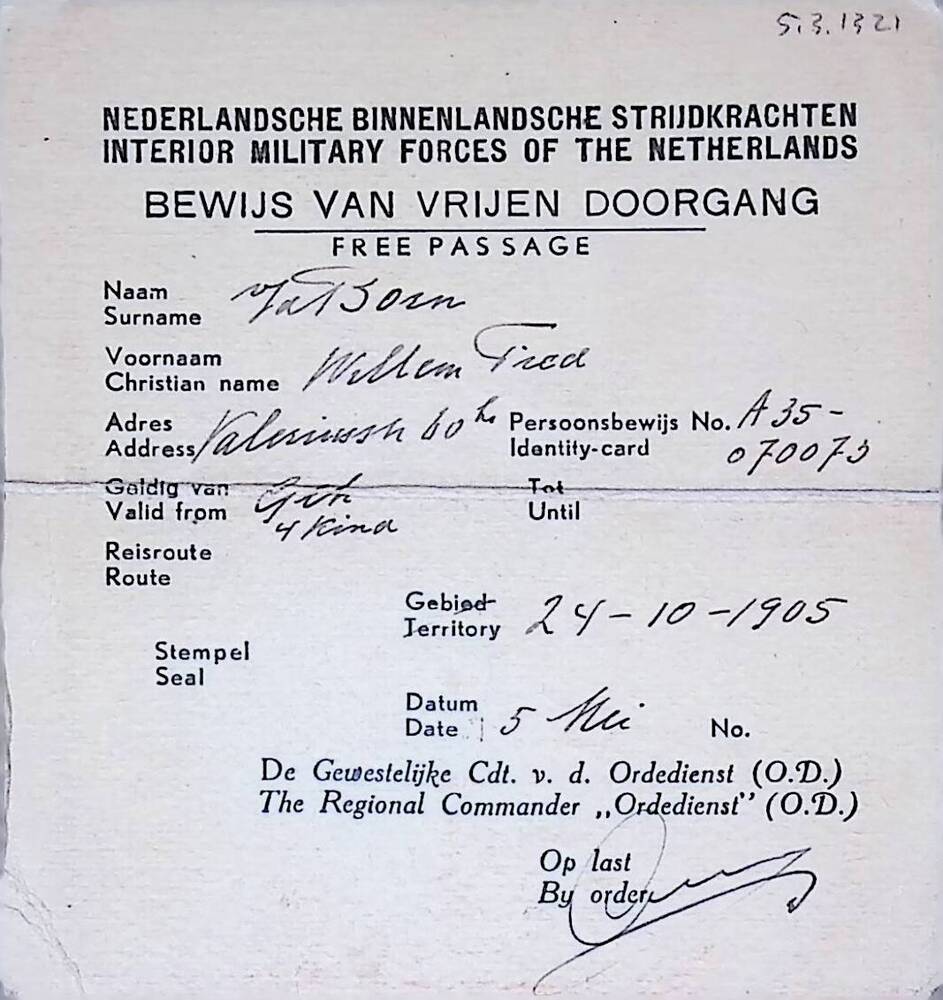 5.3.1321
NEDERLANDSCHE BINNENLANDSCHE STRIJDKRACHTEN
INTERIOR MILITARY FORCES OF THE NETHERLANDS
BEWIJS VAN VRIJEN DOORGANG
FREE PASSAGE
Naam
Surname
Voornaam
Christian name Willem Fred
Adres
Address 60 hs
Persoonsbewijs No. A 35 -
Identity-card 070073
Geldig van
Valid from
4 Kind
Tot
Until
Reisroute
Route
Gebied
Territory 24-10-1905
Stempel
Seal
Datum
Date 5 Mei No.
De Gewestelijke Cdt. v. d. Ordedienst (O.D.)
The Regional Commander „Ordedienst" (O.D.)
Op last
By order